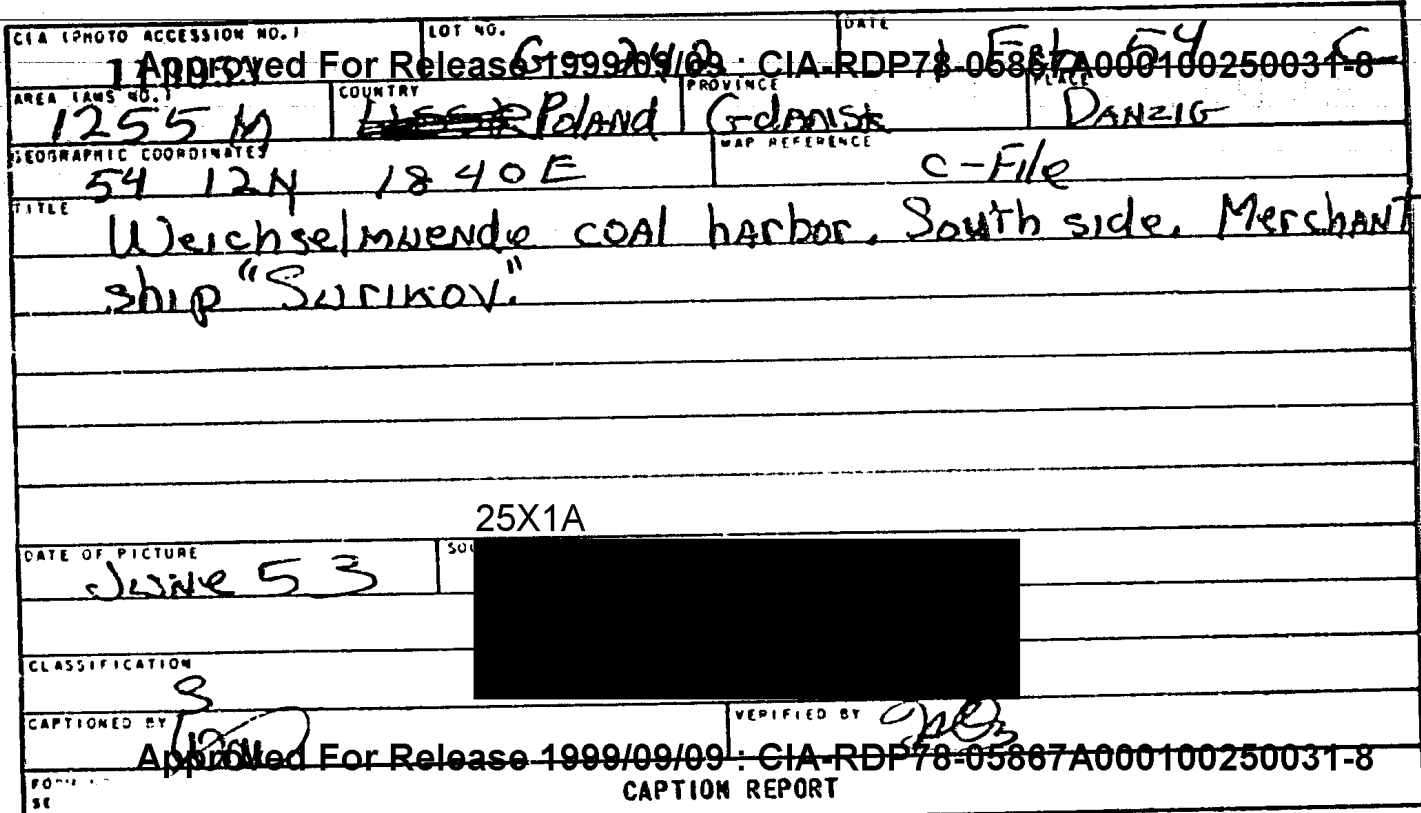 CIA (PHOTO ACCESSION NO.) LOT NO. DATE
Approved For Release 1999/09/09 : CIA-RDP78-05867A000100250031-8
Feb 54
AREA (AMS NO.) COUNTRY PROVINCE PLACE
1255 M Poland Gdansk DANZIG
GEOGRAPHIC COORDINATES MAP REFERENCE
54 12N 18 40E C-File
TITLE
Weichselmuende coal harbor. South side. Merchant
ship "Surikov."
25X1A
DATE OF PICTURE
June 53
CLASSIFICATION
S
CAPTIONED BY VERIFIED BY
Approved For Release 1999/09/09 : CIA-RDP78-05867A000100250031-8
CAPTION REPORT